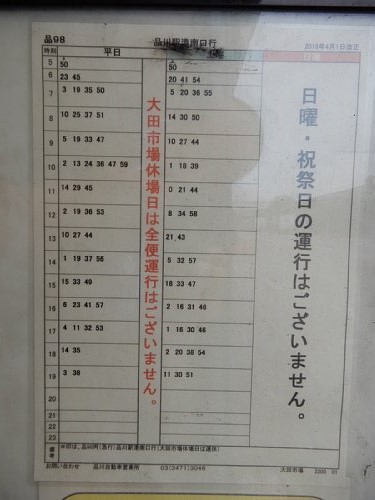 品98 品川駅港南口行 2018年4月1日改正
時刻 平日
5 50 50
6 23 45 20 41 54
7 3 19 35 50 5 20 36 55
8 10 25 37 51 14 30 50
9 5 19 33 47 10 27 44
10 2 13 24 36 47 59 1 18 39
11 14 29 45 0 21 44
12 2 19 36 53 8 34 58
13 10 27 44 21 43
14 1 19 37 56 5 32 57
15 15 33 49 18 33 47
16 6 23 41 57 2 16 31 46
17 4 11 32 53 1 16 30 46
18 14 35 2 20 38 54
19 3 38 11 30 51
20
21
22
23
大田市場休場日は全便運行はございません。
日曜・祝祭日の運行はございません。
備考
お問い合わせ 品川自動車営業所 03(3471)3046 大田市場 2200 01